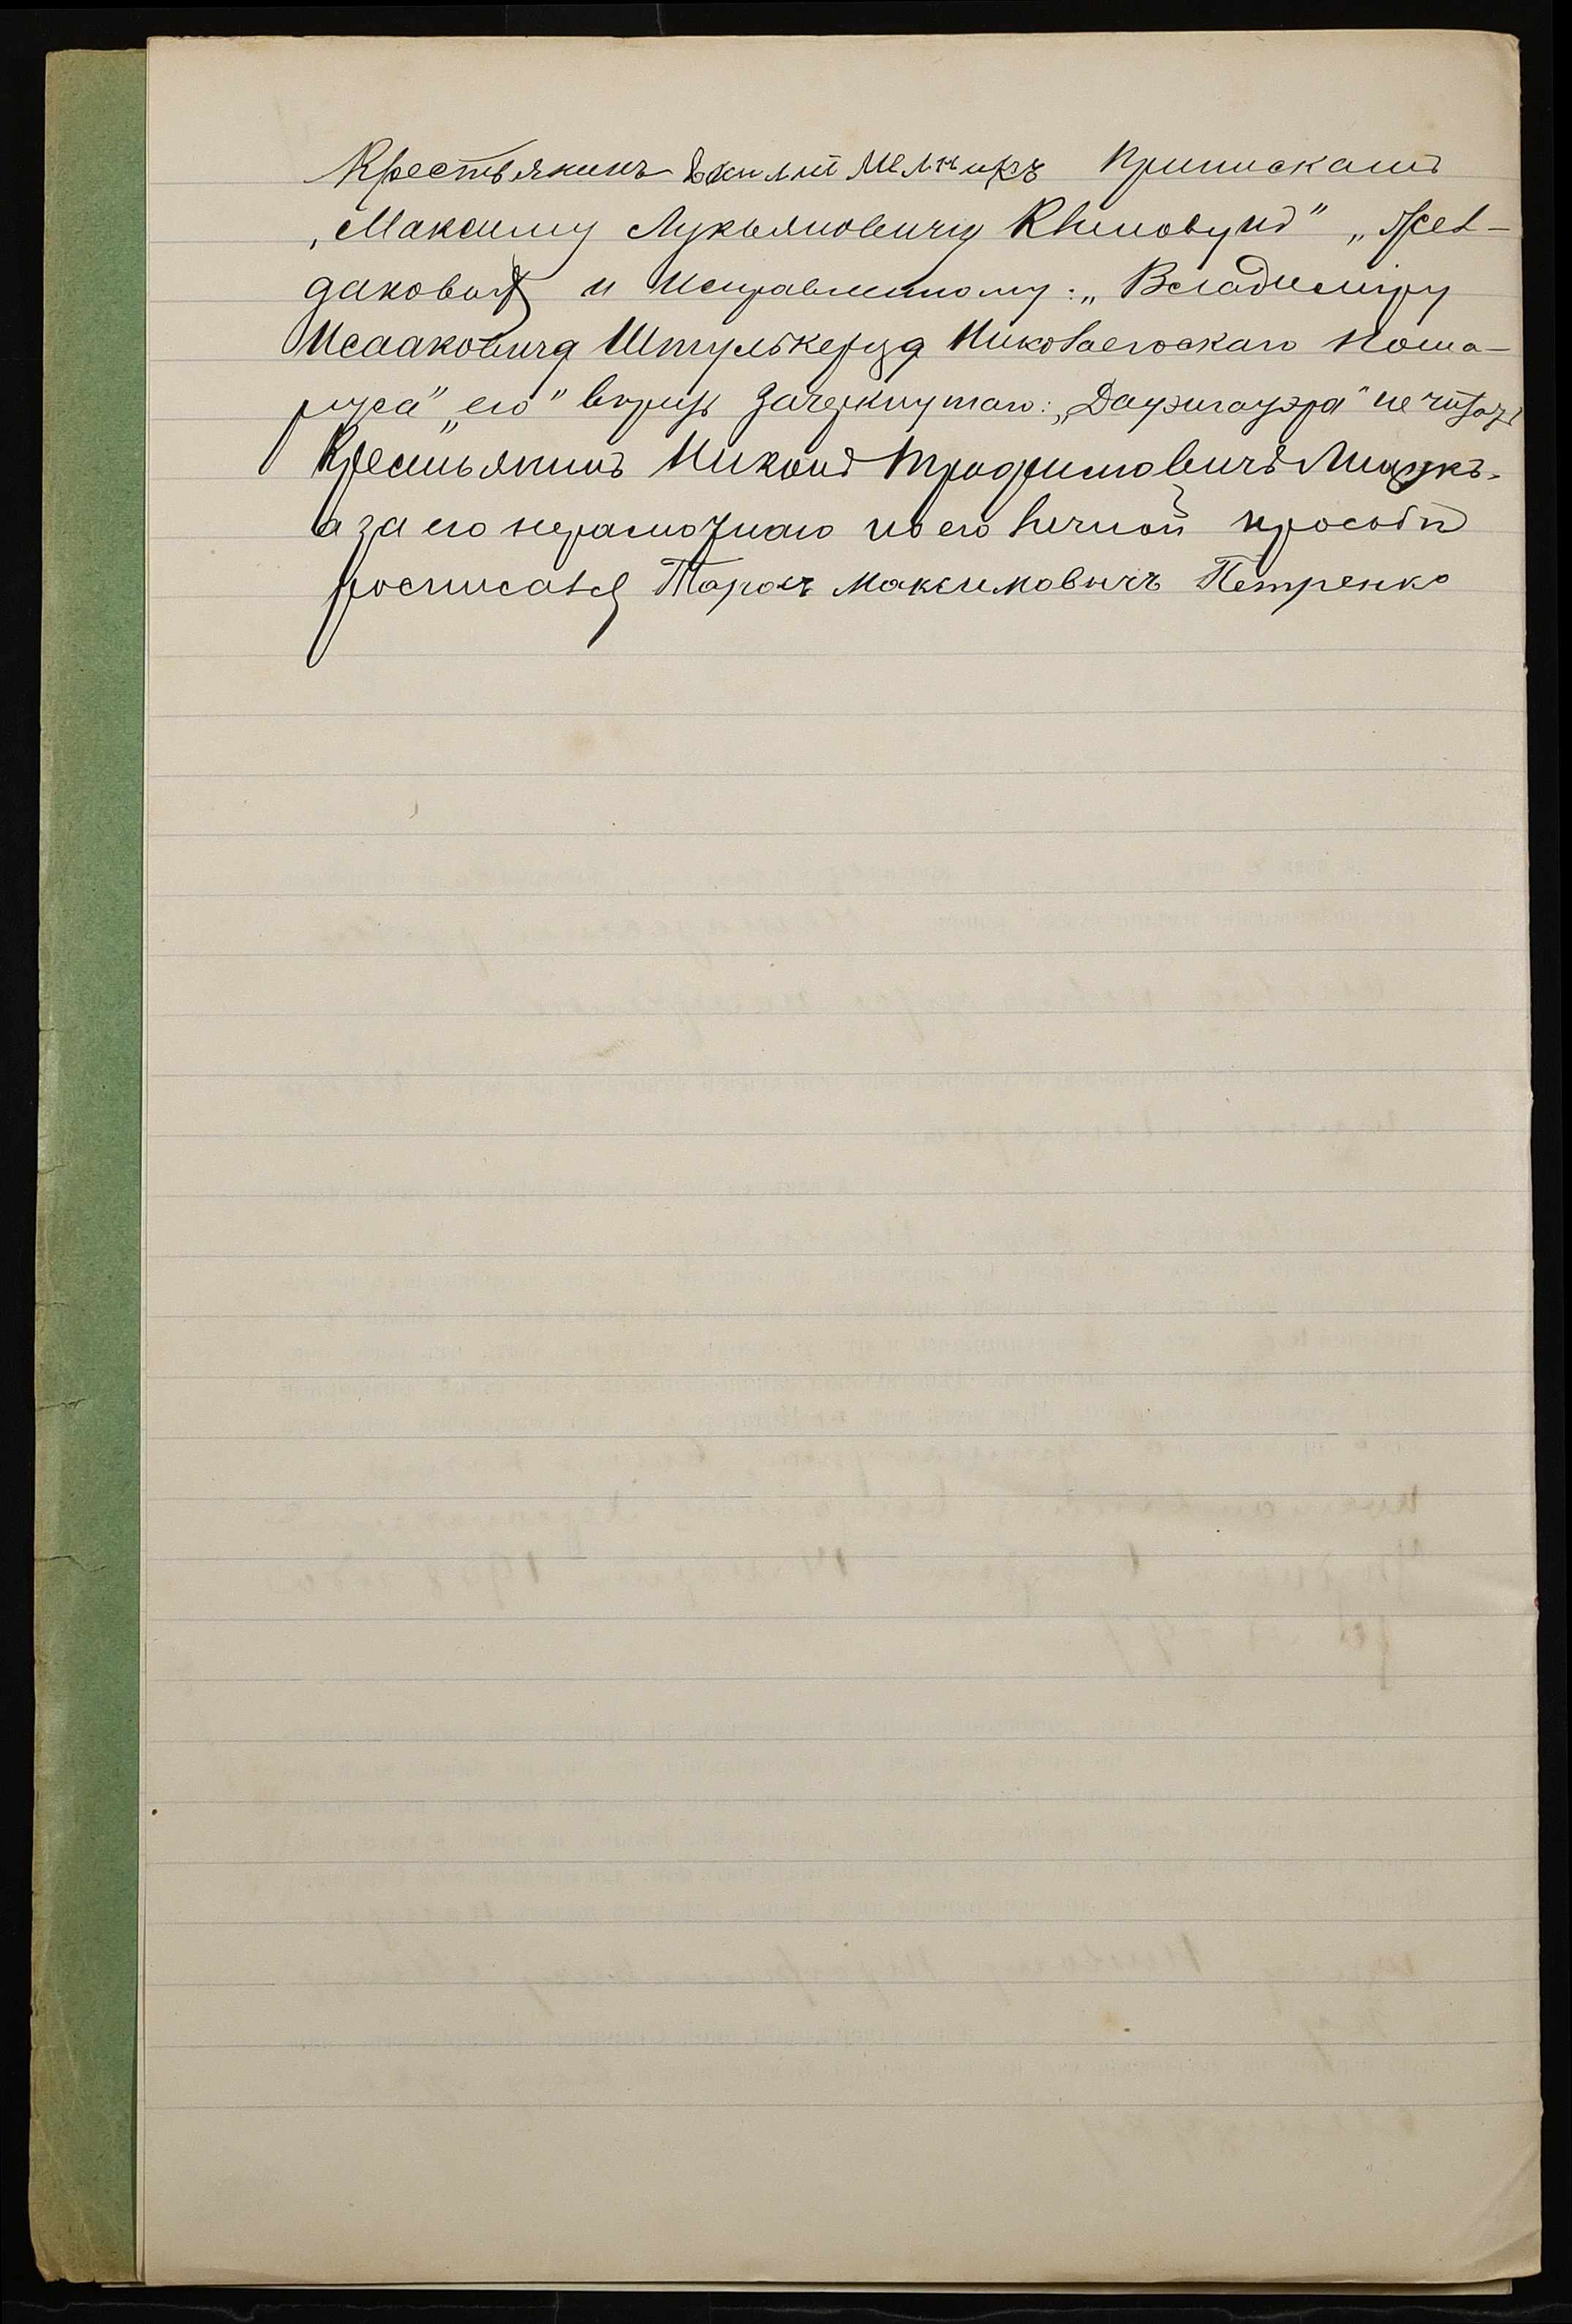 Крестьянинъ Мелникъ Припискамъ
„Максиму Лукьяновичу Климовуид“ „Жел-
даковыя и исправленному: „Владимиру
Исааковича Штулькерца Николаевскаго нота-
руса“ „его“ вѣрить зачеркнутаго: „Даузигауэра“ не читать
Крестьянинъ Никонъ Трофимовичъ
а за его неграмотнаго по его личной просьбѣ
росписался Тарасъ Максимовичъ Петренко